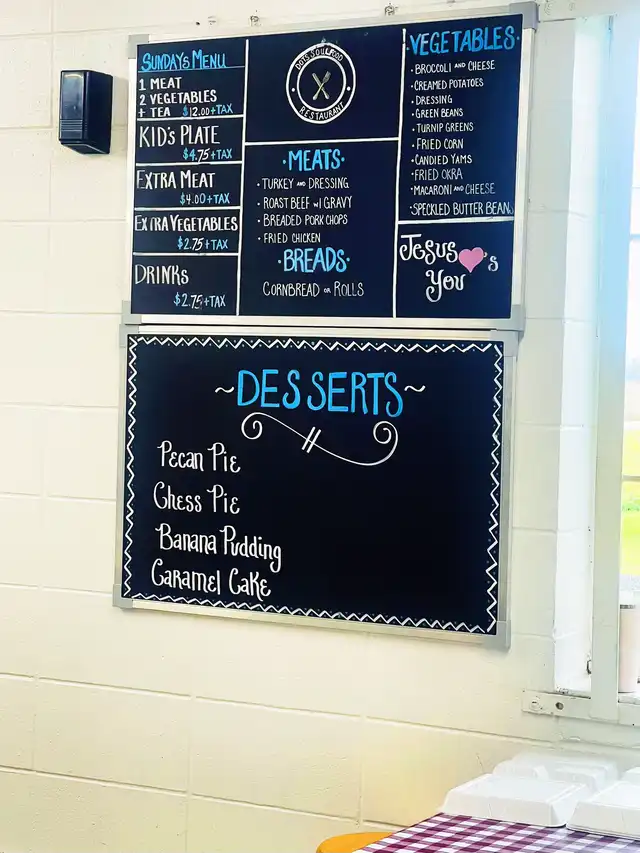 SUNDAY'S MENU
1 MEAT
2 VEGETABLES
+ TEA $12.00+TAX
KID'S PLATE
$4.75+TAX
EXTRA MEAT
$4.00+TAX
EXTRA VEGETABLES
$2.75+TAX
DRINKS
$2.75+TAX
RESTAURANT
·MEATS·
· TURKEY AND DRESSING
· ROAST BEEF W/ GRAVY
· BREADED PORK CHOPS
· FRIED CHICKEN
·BREADS·
CORNBREAD OR ROLLS
·VEGETABLES·
· BROCCOLI AND CHEESE
· CREAMED POTATOES
· DRESSING
· GREEN BEANS
· TURNIP GREENS
· FRIED CORN
· CANDIED YAMS
· FRIED OKRA
· MACARONI AND CHEESE
· SPECKLED BUTTER BEANS
Jesus ♥'s
You
~DESSERTS~
Pecan Pie
Chess Pie
Banana Pudding
Caramel Cake